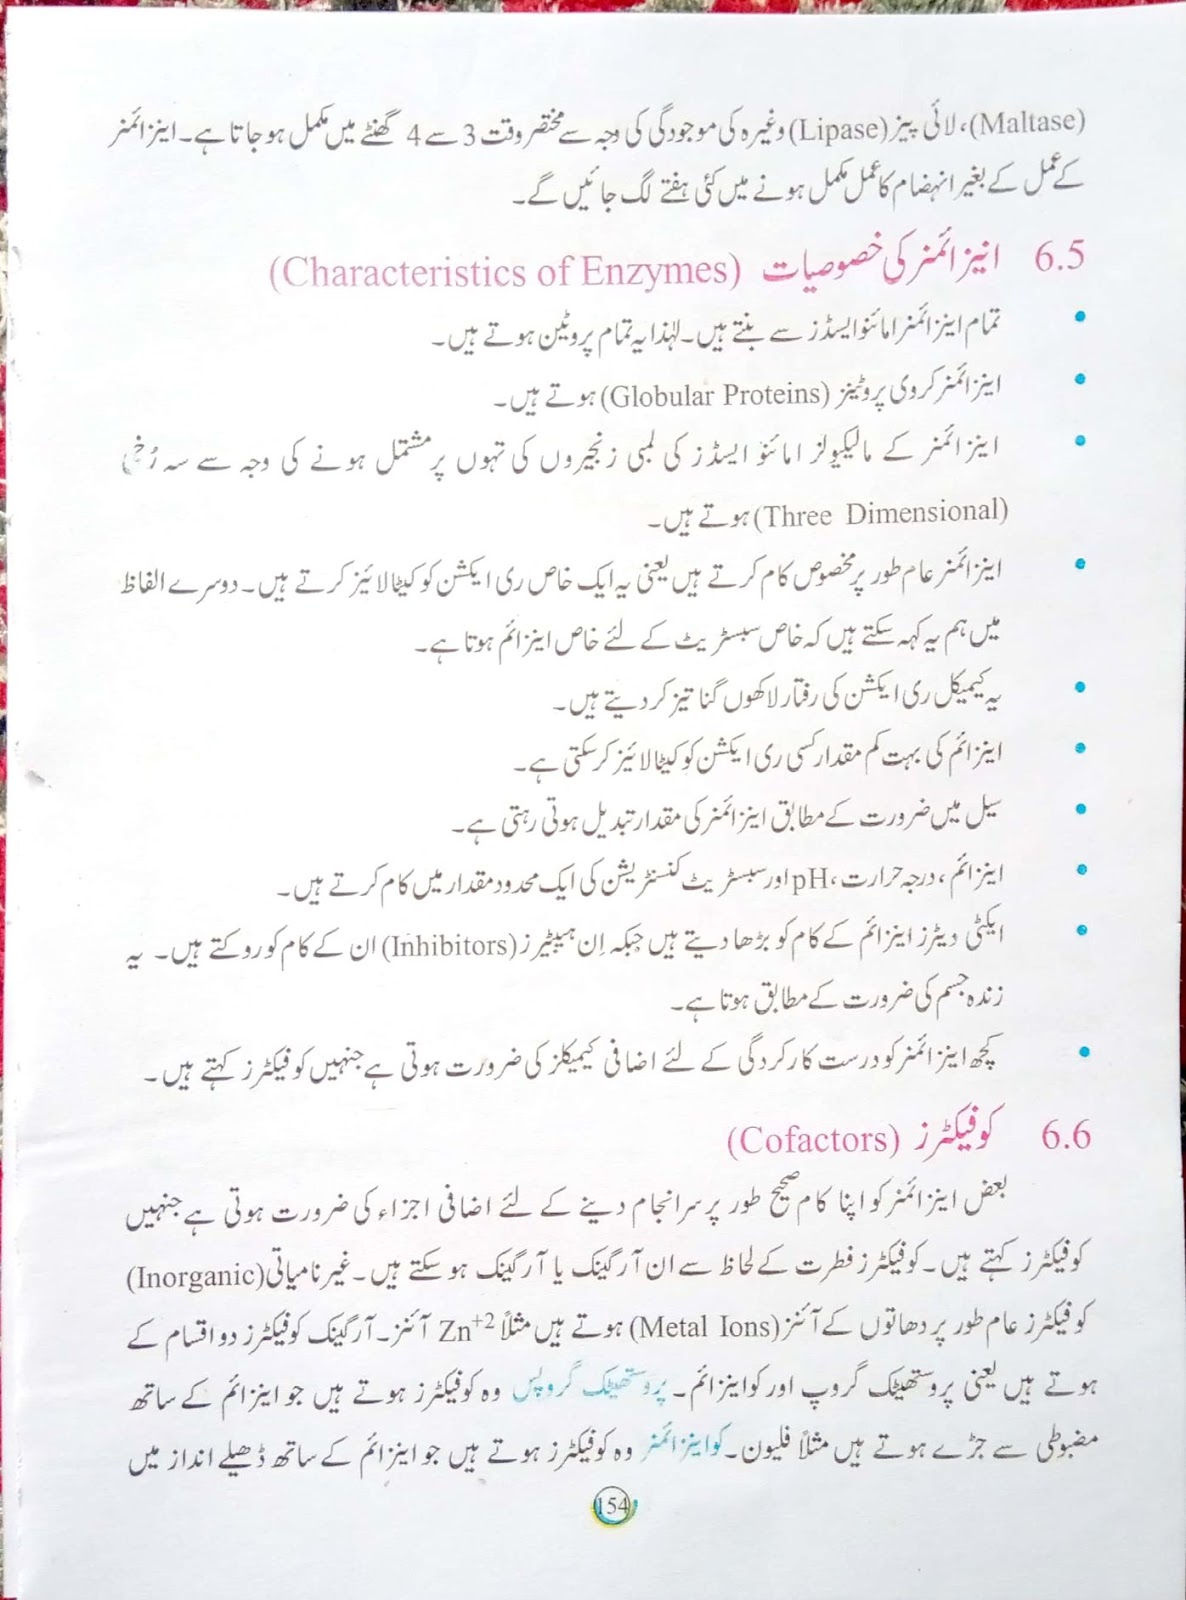 (Maltase)، لائی پیز (Lipase) وغیرہ کی موجودگی کی وجہ سے مختصر وقت 3 سے 4 گھنٹے میں مکمل ہو جاتا ہے۔ اینزائمنر
کے عمل کے بغیر انہضام کا عمل مکمل ہونے میں کئی ہفتے لگ جائیں گے۔
6.5 انیزائمنر کی خصوصیات (Characteristics of Enzymes)
• تمام اینزائمنر امائنو ایسڈز سے بنتے ہیں۔ لہٰذا یہ تمام پروٹین ہوتے ہیں۔
• اینزائمنر کروی پروٹینز (Globular Proteins) ہوتے ہیں۔
• اینزائمنر کے مالیکولز امائنو ایسڈز کی لمبی زنجیروں کی تہوں پر مشتمل ہونے کی وجہ سے سہ رُخی
(Three Dimensional) ہوتے ہیں۔
• اینزائمنر عام طور پر مخصوص کام کرتے ہیں یعنی یہ ایک خاص ری ایکشن کو کیٹالائیز کرتے ہیں۔ دوسرے الفاظ
میں ہم یہ کہہ سکتے ہیں کہ خاص سبسٹریٹ کے لئے خاص اینزائم ہوتا ہے۔
• یہ کیمیکل ری ایکشن کی رفتار لاکھوں گنا تیز کر دیتے ہیں۔
• اینزائم کی بہت کم مقدار کسی ری ایکشن کو کیٹالائیز کرسکتی ہے۔
• سیل میں ضرورت کے مطابق اینزائمنر کی مقدار تبدیل ہوتی رہتی ہے۔
• اینزائم، درجہ حرارت، pH اور سبسٹریٹ کنسنٹریشن کی ایک محدود مقدار میں کام کرتے ہیں۔
• ایکٹی ویٹرز اینزائم کے کام کو بڑھا دیتے ہیں جبکہ اِن ہیبیٹرز (Inhibitors) ان کے کام کو روکتے ہیں۔ یہ
زندہ جسم کی ضرورت کے مطابق ہوتا ہے۔
• کچھ اینزائمنر کو درست کارکردگی کے لئے اضافی کیمیکلز کی ضرورت ہوتی ہے جنہیں کوفیکٹرز کہتے ہیں۔
6.6 کوفیکٹرز (Cofactors)
بعض اینزائمنر کو اپنا کام صحیح طور پر سرانجام دینے کے لئے اضافی اجزاء کی ضرورت ہوتی ہے جنہیں
کوفیکٹرز کہتے ہیں۔ کوفیکٹرز فطرت کے لحاظ سے ان آرگینک یا آرگینک ہو سکتے ہیں۔ غیر نامیاتی (Inorganic)
کوفیکٹرز عام طور پر دھاتوں کے آئنز (Metal Ions) ہوتے ہیں مثلاً Zn⁺² آئنز۔ آرگینک کوفیکٹرز دو اقسام کے
ہوتے ہیں یعنی پروستھیٹک گروپ اور کو اینزائم۔ پروستھیٹک گروپس وہ کوفیکٹرز ہوتے ہیں جو اینزائم کے ساتھ
مضبوطی سے جڑے ہوتے ہیں مثلاً فلیون۔ کو اینزائمنر وہ کوفیکٹرز ہوتے ہیں جو اینزائم کے ساتھ ڈھیلے انداز میں
154